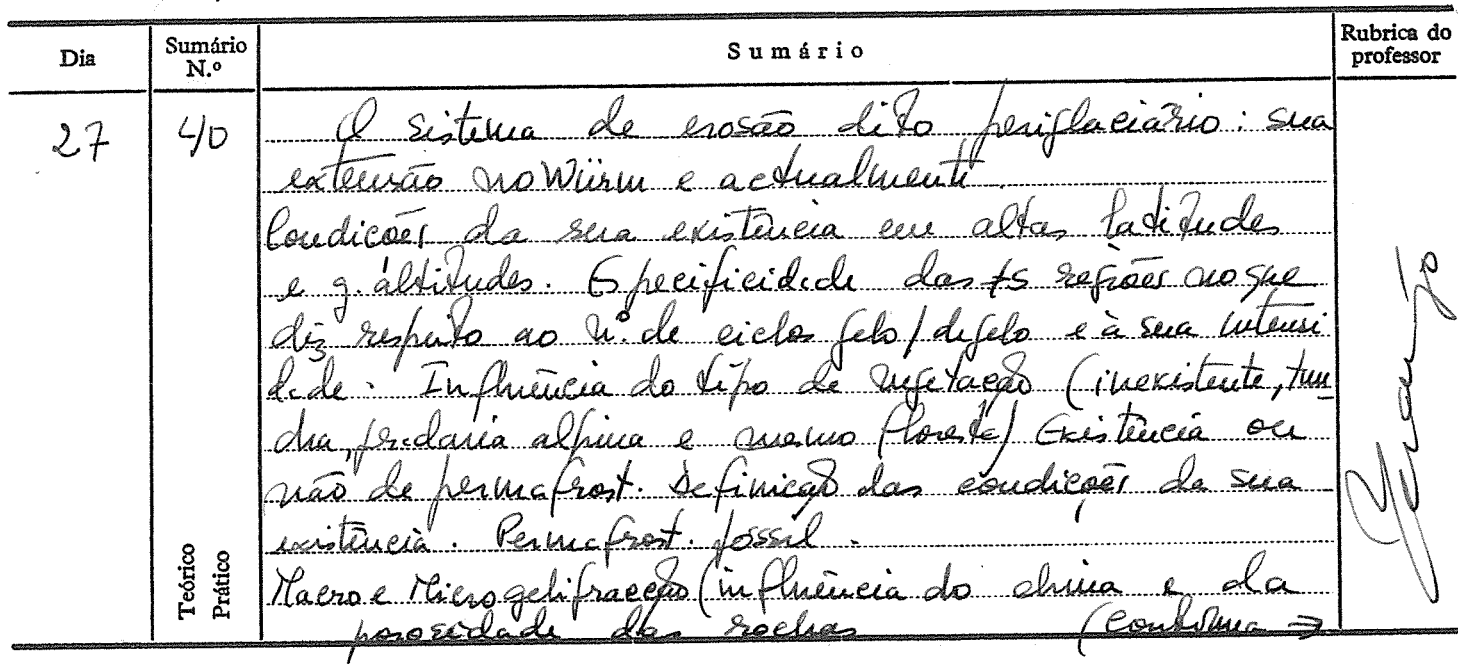 Dia
Sumário N.º
Sumário
Rubrica do professor
27
40
O sistema de erosão dito periglaciário: sua
extensão no Würm e actualmente.
Condições da sua existência em altas latitudes
e g. altitudes. Especificidade das ≠s regiões no que
diz respeito ao n.º de ciclos gelo/degelo e à sua intensi
dade. Influência do tipo de vegetação (inexistente, tun
dra, pradaria alpina e mesmo floresta) Existência ou
não de permafrost. Definição das condições da sua
existência. Permafrost. fóssil.
Macro e Microgelifracção (influência do clima e da
porosidade das rochas (continua →
Teórico
Prático